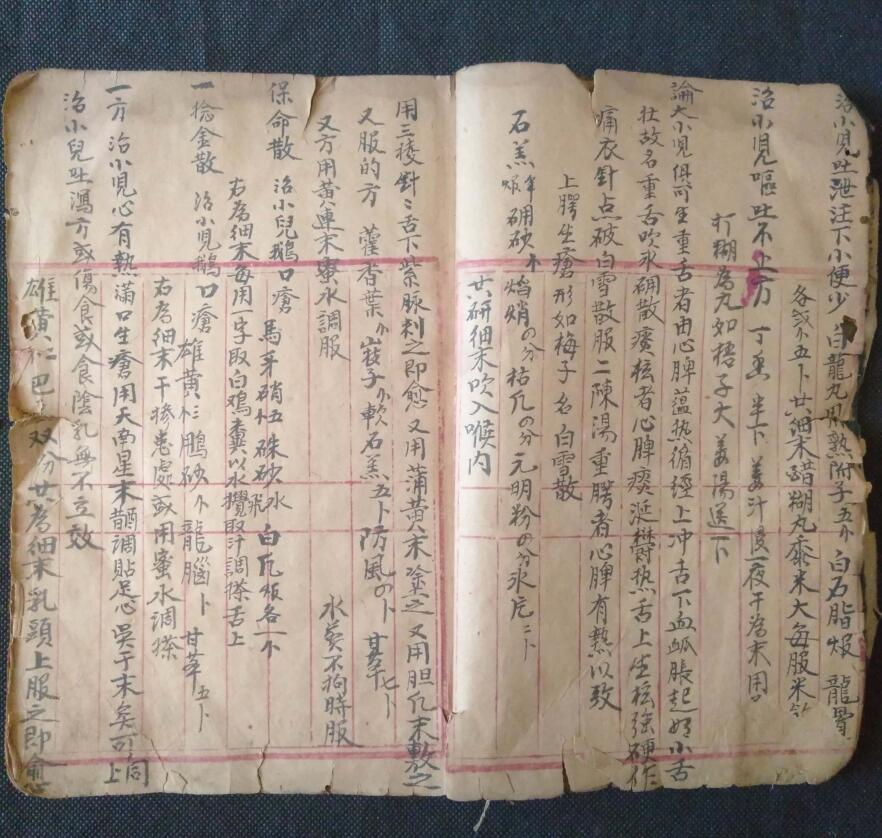 治小児吐泄注下小便少 白龍丸用熟附子五个 白石脂煅 龍骨
各弍个五卜 共細末醋糊丸黍米大每服米飲
治小児嘔吐不止方 丁香 半下 姜汁浸一夜干為末用
打糊為丸如梧子大 姜湯送下
論大小児俱可生重舌者由心脾蘊热循經上冲舌下血脈脹起如小舌
壮故名重舌吹氷硼散 痰核者心脾痰涎欝热舌上生核強硬作
痛衣針点破白雪散服二陳湯重腭者心脾有熱以致
上腭生瘡形如梅子名白雪散
石羔煅 硼砂 焰硝の分枯凡の分元明粉の分氷片二卜
共研細末吹入喉内
用三稜針〻舌下紫脉刺之即愈 又用蒲黄末塗之 又用胆凡末敷之
又服的方 藿香葉 山枝子 軟石羔五卜防風の卜 甘草七卜
又方用黄連末蜜水調服 水煎不拘時服
保命散 治小兒鵝口瘡 馬牙硝 硃砂水飛 白凡煅各一个
右為細末每用一字取白鸡糞以水攪取汁調搽舌上
一捻金散 治小児鵝口瘡 雄黄 鵬砂个 龍腦卜 甘草五卜
右為細末干摻患處或用蜜水調搽
一方 治小児心有熱滿口生瘡用天南星末醋調貼足心 吳于末矣可 上同
治小兒吐瀉方或傷食或食陰乳無不立效
雄黄 巴豆 双分共為細末乳頭上服之即愈